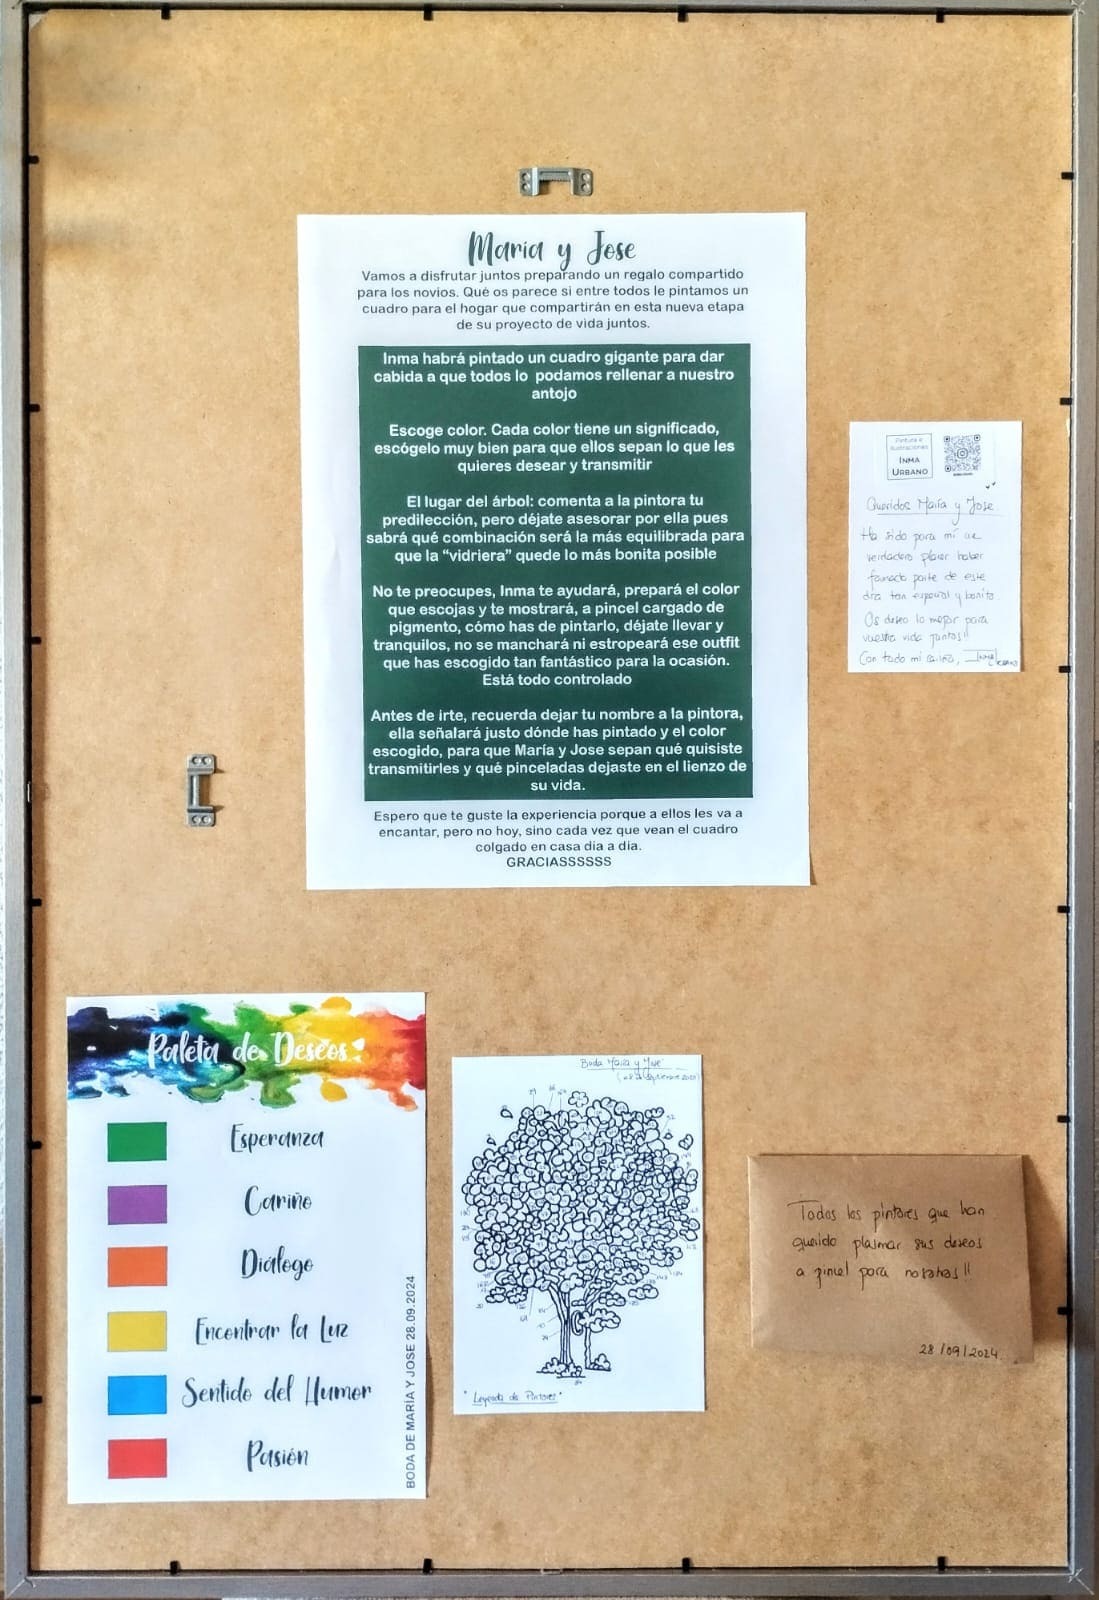 María y Jose
Vamos a disfrutar juntos preparando un regalo compartido
para los novios. Qué os parece si entre todos le pintamos un
cuadro para el hogar que compartirán en esta nueva etapa
de su proyecto de vida juntos.
Inma habrá pintado un cuadro gigante para dar
cabida a que todos lo podamos rellenar a nuestro
antojo
Escoge color. Cada color tiene un significado,
escógelo muy bien para que ellos sepan lo que les
quieres desear y transmitir
El lugar del árbol: comenta a la pintora tu
predilección, pero déjate asesorar por ella pues
sabrá qué combinación será la más equilibrada para
que la “vidriera” quede lo más bonita posible
No te preocupes, Inma te ayudará, prepará el color
que escojas y te mostrará, a pincel cargado de
pigmento, cómo has de pintarlo, déjate llevar y
tranquilos, no se manchará ni estropeará ese outfit
que has escogido tan fantástico para la ocasión.
Está todo controlado
Antes de irte, recuerda dejar tu nombre a la pintora,
ella señalará justo dónde has pintado y el color
escogido, para que María y Jose sepan qué quisiste
transmitirles y qué pinceladas dejaste en el lienzo de
su vida.
Espero que te guste la experiencia porque a ellos les va a
encantar, pero no hoy, sino cada vez que vean el cuadro
colgado en casa dia a dia.
GRACIASSSSSS
Pintura e
Ilustraciones
INMA
URBANO
Queridos María y Jose
Ha sido para mí un
verdadero placer haber
formado parte de este
día tan especial y bonito.
Os deseo lo mejor para
vuestra vida juntos!!
Con todo mi cariño, INMA URBANO
Paleta de Deseos
Esperanza
Cariño
Diálogo
Encontrar la Luz
Sentido del Humor
Pasión
BODA DE MARÍA Y JOSE 28.09.2024
Boda María y Jose
"Leyenda de Pintores"
Todos los pintores que han
querido plasmar sus deseos
a pincel para nosotros!!
28/09/2024